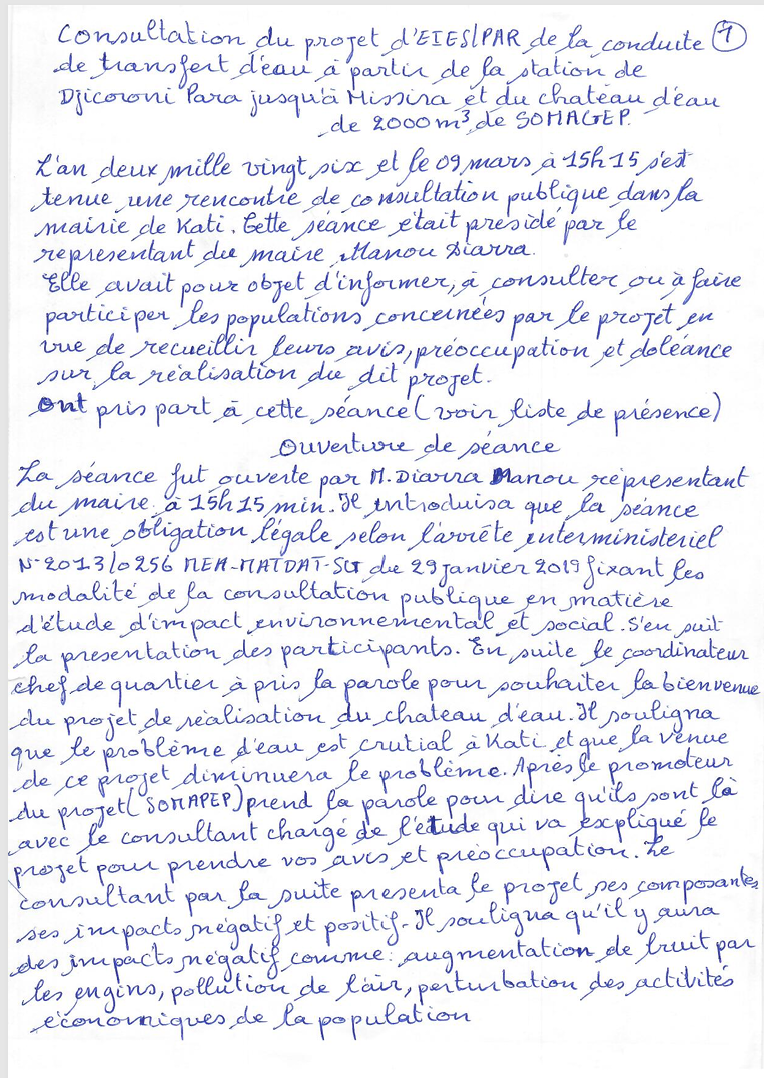 Consultation du projet d'EIES/PAR de la conduite 1
de transfert d'eau à partir de la station de
Djicoroni Para jusqu'à Missira et du chateau d'eau
de 2000m³ de SOMAGEP.
L'an deux mille vingt six et le 09 mars à 15h15 s'est
tenue une rencontre de consultation publique dans la
mairie de Kati. Cette séance était présidé par le
representant du maire Manou Diarra.
Elle avait pour objet d'informer, à consulter ou à faire
participer les populations concernées par le projet en
vue de recueillir leurs avis, préoccupation et doléance
sur la réalisation du dit projet.
Ont pris part à cette séance (voir liste de présence)
Ouverture de séance
La séance fut ouverte par M. Diarra Manou réprésentant
du maire à 15h15 min. Il introduisa que la séance
est une obligation légale selon l'arrête interministeriel
N°2013/0256 MEA-MATDAT-SG du 29 janvier 2019 fixant les
modalité de la consultation publique en matière
d'étude d'impact environnemental et social. S'en suit
la presentation des participants. En suite le coordinateur
chef de quartier à pris la parole pour souhaiter la bienvenue
du projet de réalisation du chateau d'eau. Il souligna
que le problème d'eau est crutial à Kati et que la venue
de ce projet diminuera le problème. Après le promoteur
du projet (SOMAPEP) prend la parole pour dire qu'ils sont là
avec le consultant chargé de l'étude qui va expliqué le
projet pour prendre vos avis et préoccupation. Le
consultant par la suite presenta le projet ses composantes
ses impacts négatif et positif. Il souligna qu'il y aura
des impacts négatif comme: augmentation de bruit par
les engins, pollution de l'air, perturbation des activités
économiques de la population